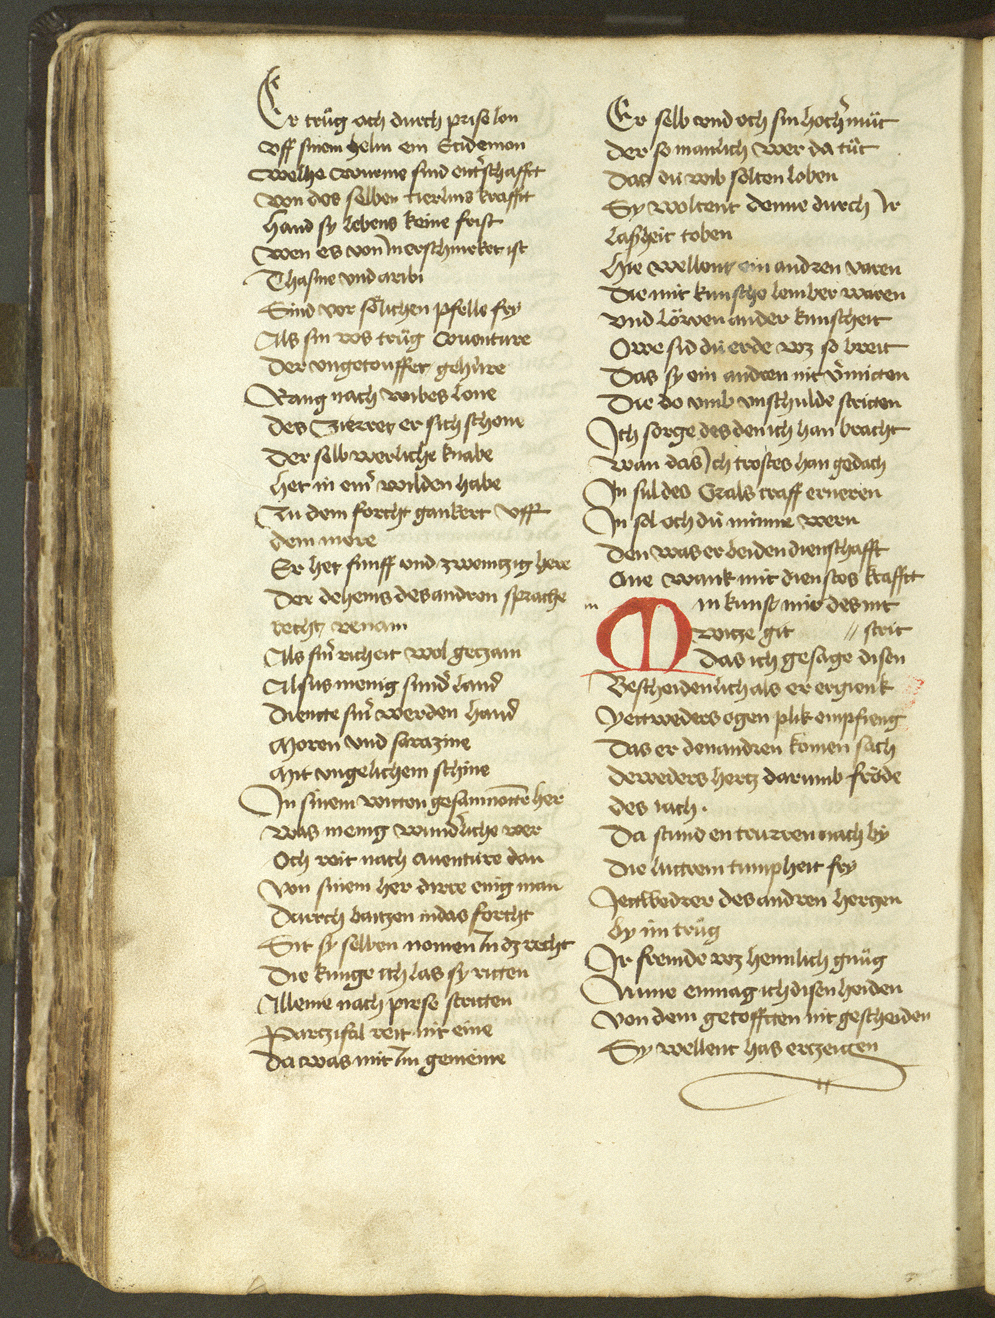 Er trüg och durch prise lon
Vff sinem helm ein Ecidemon
Welhe wurme sind eiterschafft
Von des selben tierlins krafft
Hand sy lebens keine frist
Wen es von In erschmeket ist
Thasme vnd aribi
Sind vor sölichen pfelle fry
Als sin ros trüg Couenture
Der vngetouffet gehüre
Rang nach wibes lone
Des Zierret er sich schone
Der selb werliche knabe
Het in eim wilden habe
Zu dem forcht gankert vff
dem mere
Er het funff vnd zwentzig here
Der deheins des andren sprache
recht venam
Als sin richeit wol getzam
Alsus menig sund land
Diente sinr werden hand
Moren vnd sarazine
Mit vngelichem schine
In sinem witten gesamnotte her
Was menig wundliche wer
Och reit nach auenture dan
Von sinem her dirre einig man
Durch baitzen in das forcht
Sit sy selben nomen In dz recht
Die kunge ich las sy ritten
Alleine nach prese stritten
Partzifal reit nit eine
Da was mit Im gemeine
Er selb vnd och sin hocher müt
Der so manlich wer da tüt
Das du wib solten loben
Sy woltent denne durch Ir
lasheit toben
Hie wellent ein andren varen
Die mit kunsche lember waren
Vnd löwen ander kunscheit
Owe sid du erde wz so breit
Das sy ein andren nit vermitten
Die do vmb vnschulde stritten
Ich sorge des den ich han bracht
Wan das Ich trostes han gedach
In sul des Grals craff erneren
In sol och dü minne wern
Den was er beiden dienschafft
One wank mit dienstes krafft
Min kunst mir des nit
witze git // strit
Das ich gesage disen
Bescheidenlich als er ergienk
Yettweders ogen plik empfieng
Das er den andren komen sach
Deweders hertz darumb fröde
des iach .
Da stund en truwren nach by
Die luttren tumpheit fry
Jettwedrer des andren hertzen
by im trüg
Ir fremde wz heimlich gnüg
Nune enmag ich disen heiden
Von dem getofften nit gescheiden
Sy wellent has ertzeigen